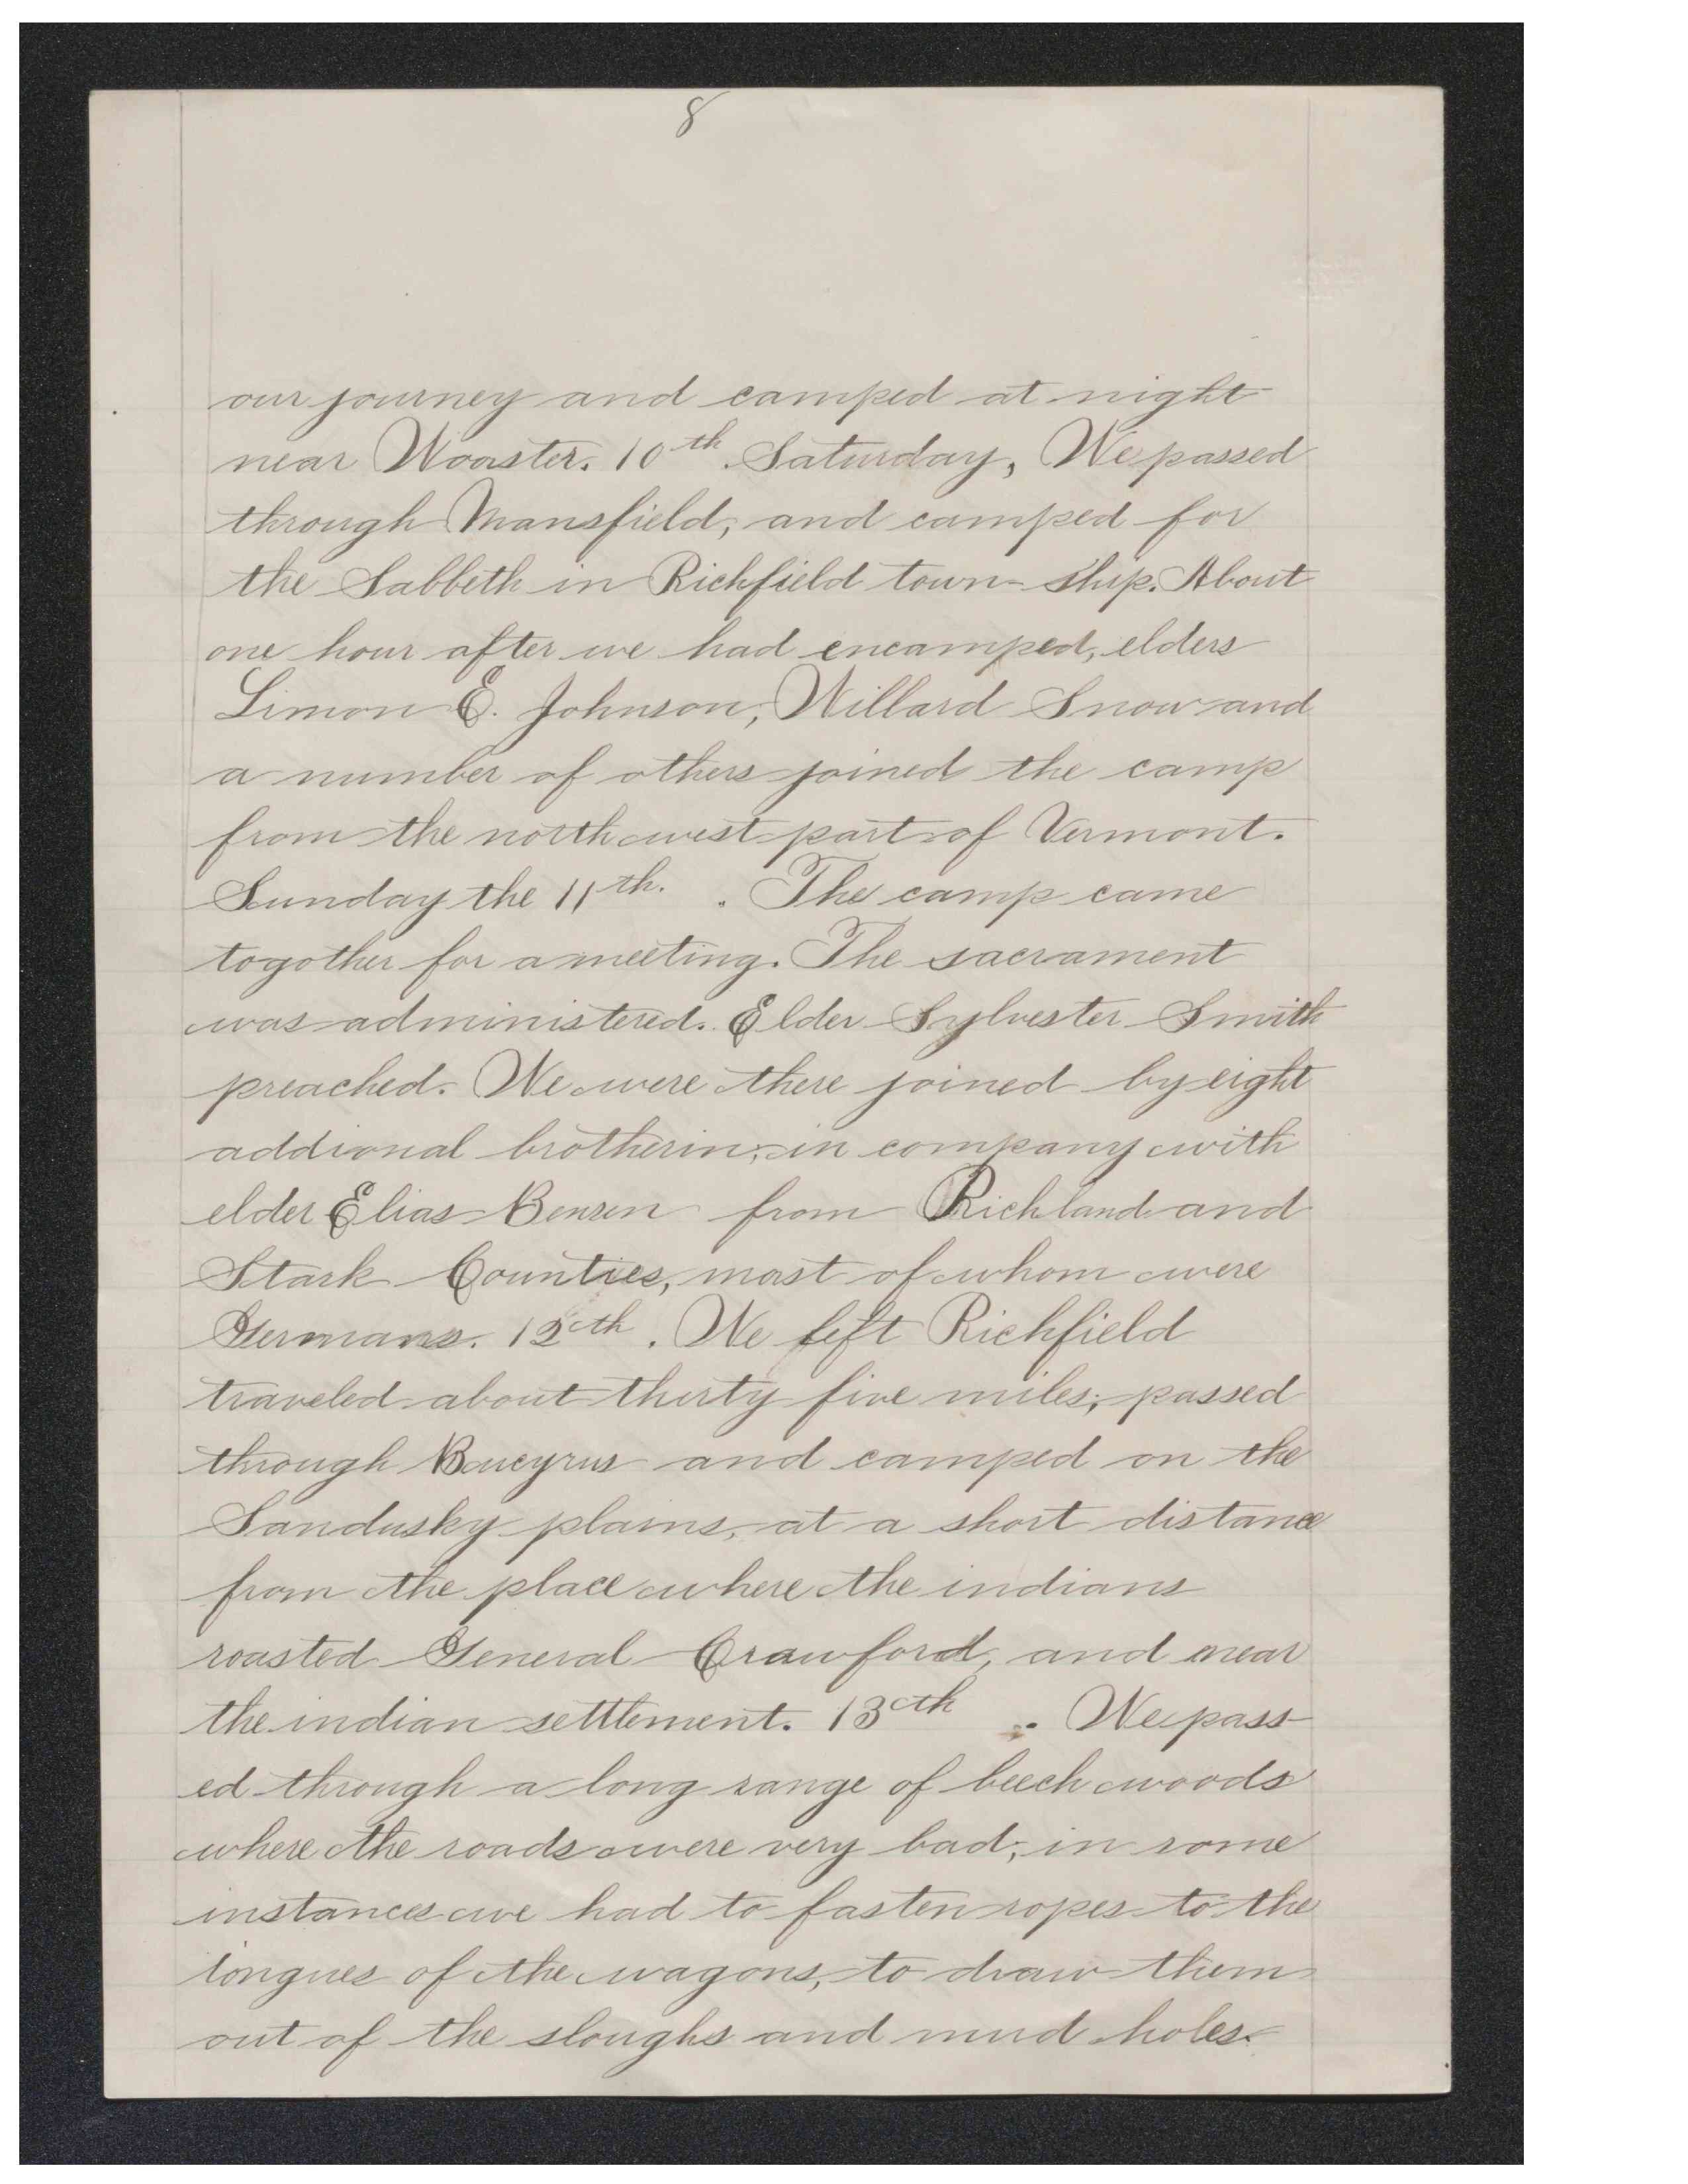 8
our journey and camped at night
near Wooster. 10th Saturday, We passed
through Mansfield, and camped for
the Sabbeth in Richfield town-ship. About
one hour after we had encamped, elders
Simon E. Johnson, Willard Snow and
a number of others joined the camp
from the north west part of Vermont.
Sunday the 11th. . The camp came
togother for a meeting. The sacrament
was administered. Elder Sylvester Smith
preached. We were there joined by eight
addional brotherin, in company with
elder Elias from Richland and
Stark Counties, most of whom were
Germans. 12th. We left Richfield
traveled about thirty five miles, passed
through Bucyrus and camped on the
Sandusky plains, at a short distance
from the place where the indians
roasted General Crawford, and near
the indian settlement. 13th . We pass-
ed through a long range of beech woods
where the roads were very bad, in some
instances we had to fasten ropes to the
tongues of the wagons, to draw them
out of the sloughs and mud holes.